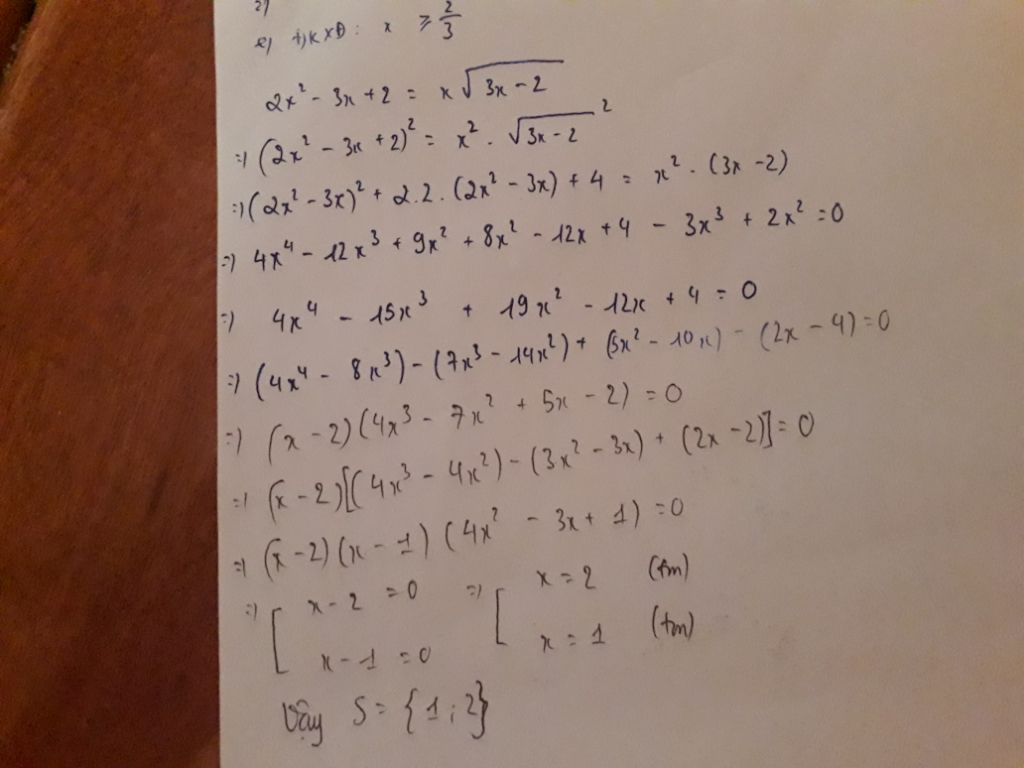 2)
e) ĐKXĐ : x ≥ 2/3
2x² - 3x + 2 = x√(3x - 2)
=) (2x² - 3x + 2)² = x² . √(3x - 2)²
=) (2x² - 3x)² + 2.2.(2x² - 3x) + 4 = x² . (3x - 2)
=) 4x⁴ - 12x³ + 9x² + 8x² - 12x + 4 - 3x³ + 2x² = 0
=) 4x⁴ - 15x³ + 19x² - 12x + 4 = 0
=) (4x⁴ - 8x³) - (7x³ - 14x²) + (5x² - 10x) - (2x - 4) = 0
=) (x - 2)(4x³ - 7x² + 5x - 2) = 0
=) (x - 2)[(4x³ - 4x²) - (3x² - 3x) + (2x - 2)] = 0
=) (x - 2)(x - 1)(4x² - 3x + 1) = 0
=) [ x - 2 = 0 =) [ x = 2 (tm)
x - 1 = 0 x = 1 (tm)
Vậy S = {1; 2}